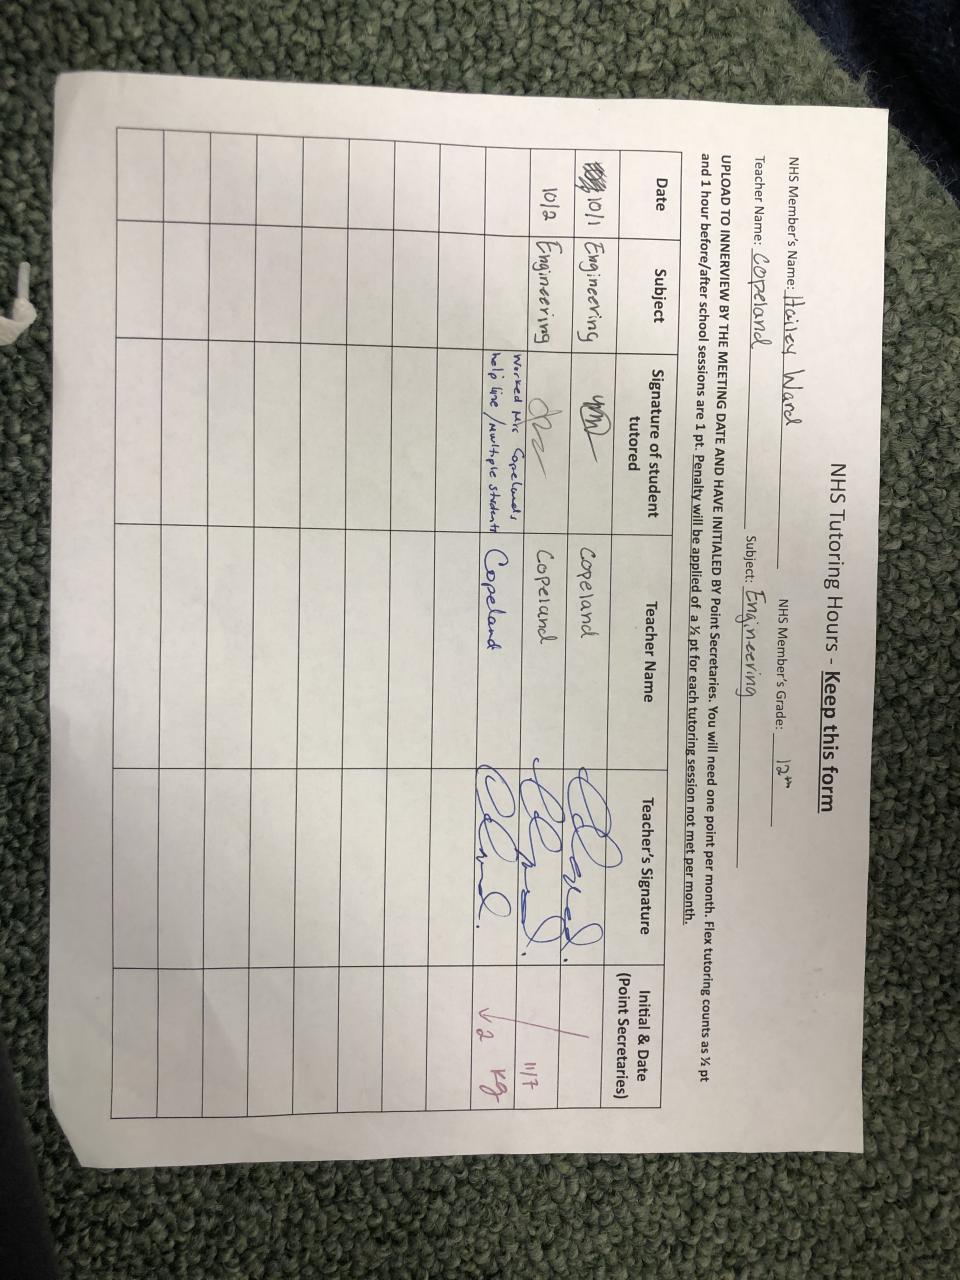 NHS Tutoring Hours - Keep this form
NHS Member's Name: Hailey Ward NHS Member's Grade: 12th
Teacher Name: Copeland Subject: Engineering
UPLOAD TO INNERVIEW BY THE MEETING DATE AND HAVE INITIALED BY Point Secretaries. You will need one point per month. Flex tutoring counts as ½ pt
and 1 hour before/after school sessions are 1 pt. Penalty will be applied of a ½ pt for each tutoring session not met per month.
Date Subject Signature of student tutored Teacher Name Teacher's Signature Initial & Date (Point Secretaries)
10/1 Engineering Copeland
10/2 Engineering Copeland 11/7
Worked Mrs Copelands
help line / Multiple students Copeland √ 2 Kg